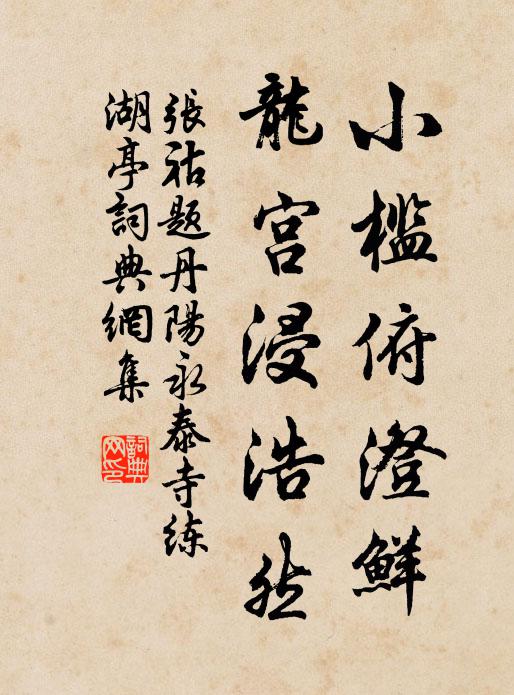 小檻俯澄鮮
龍宮浸浩然
張祜題丹陽永泰寺練
湖亭詞典網集
詞典網印